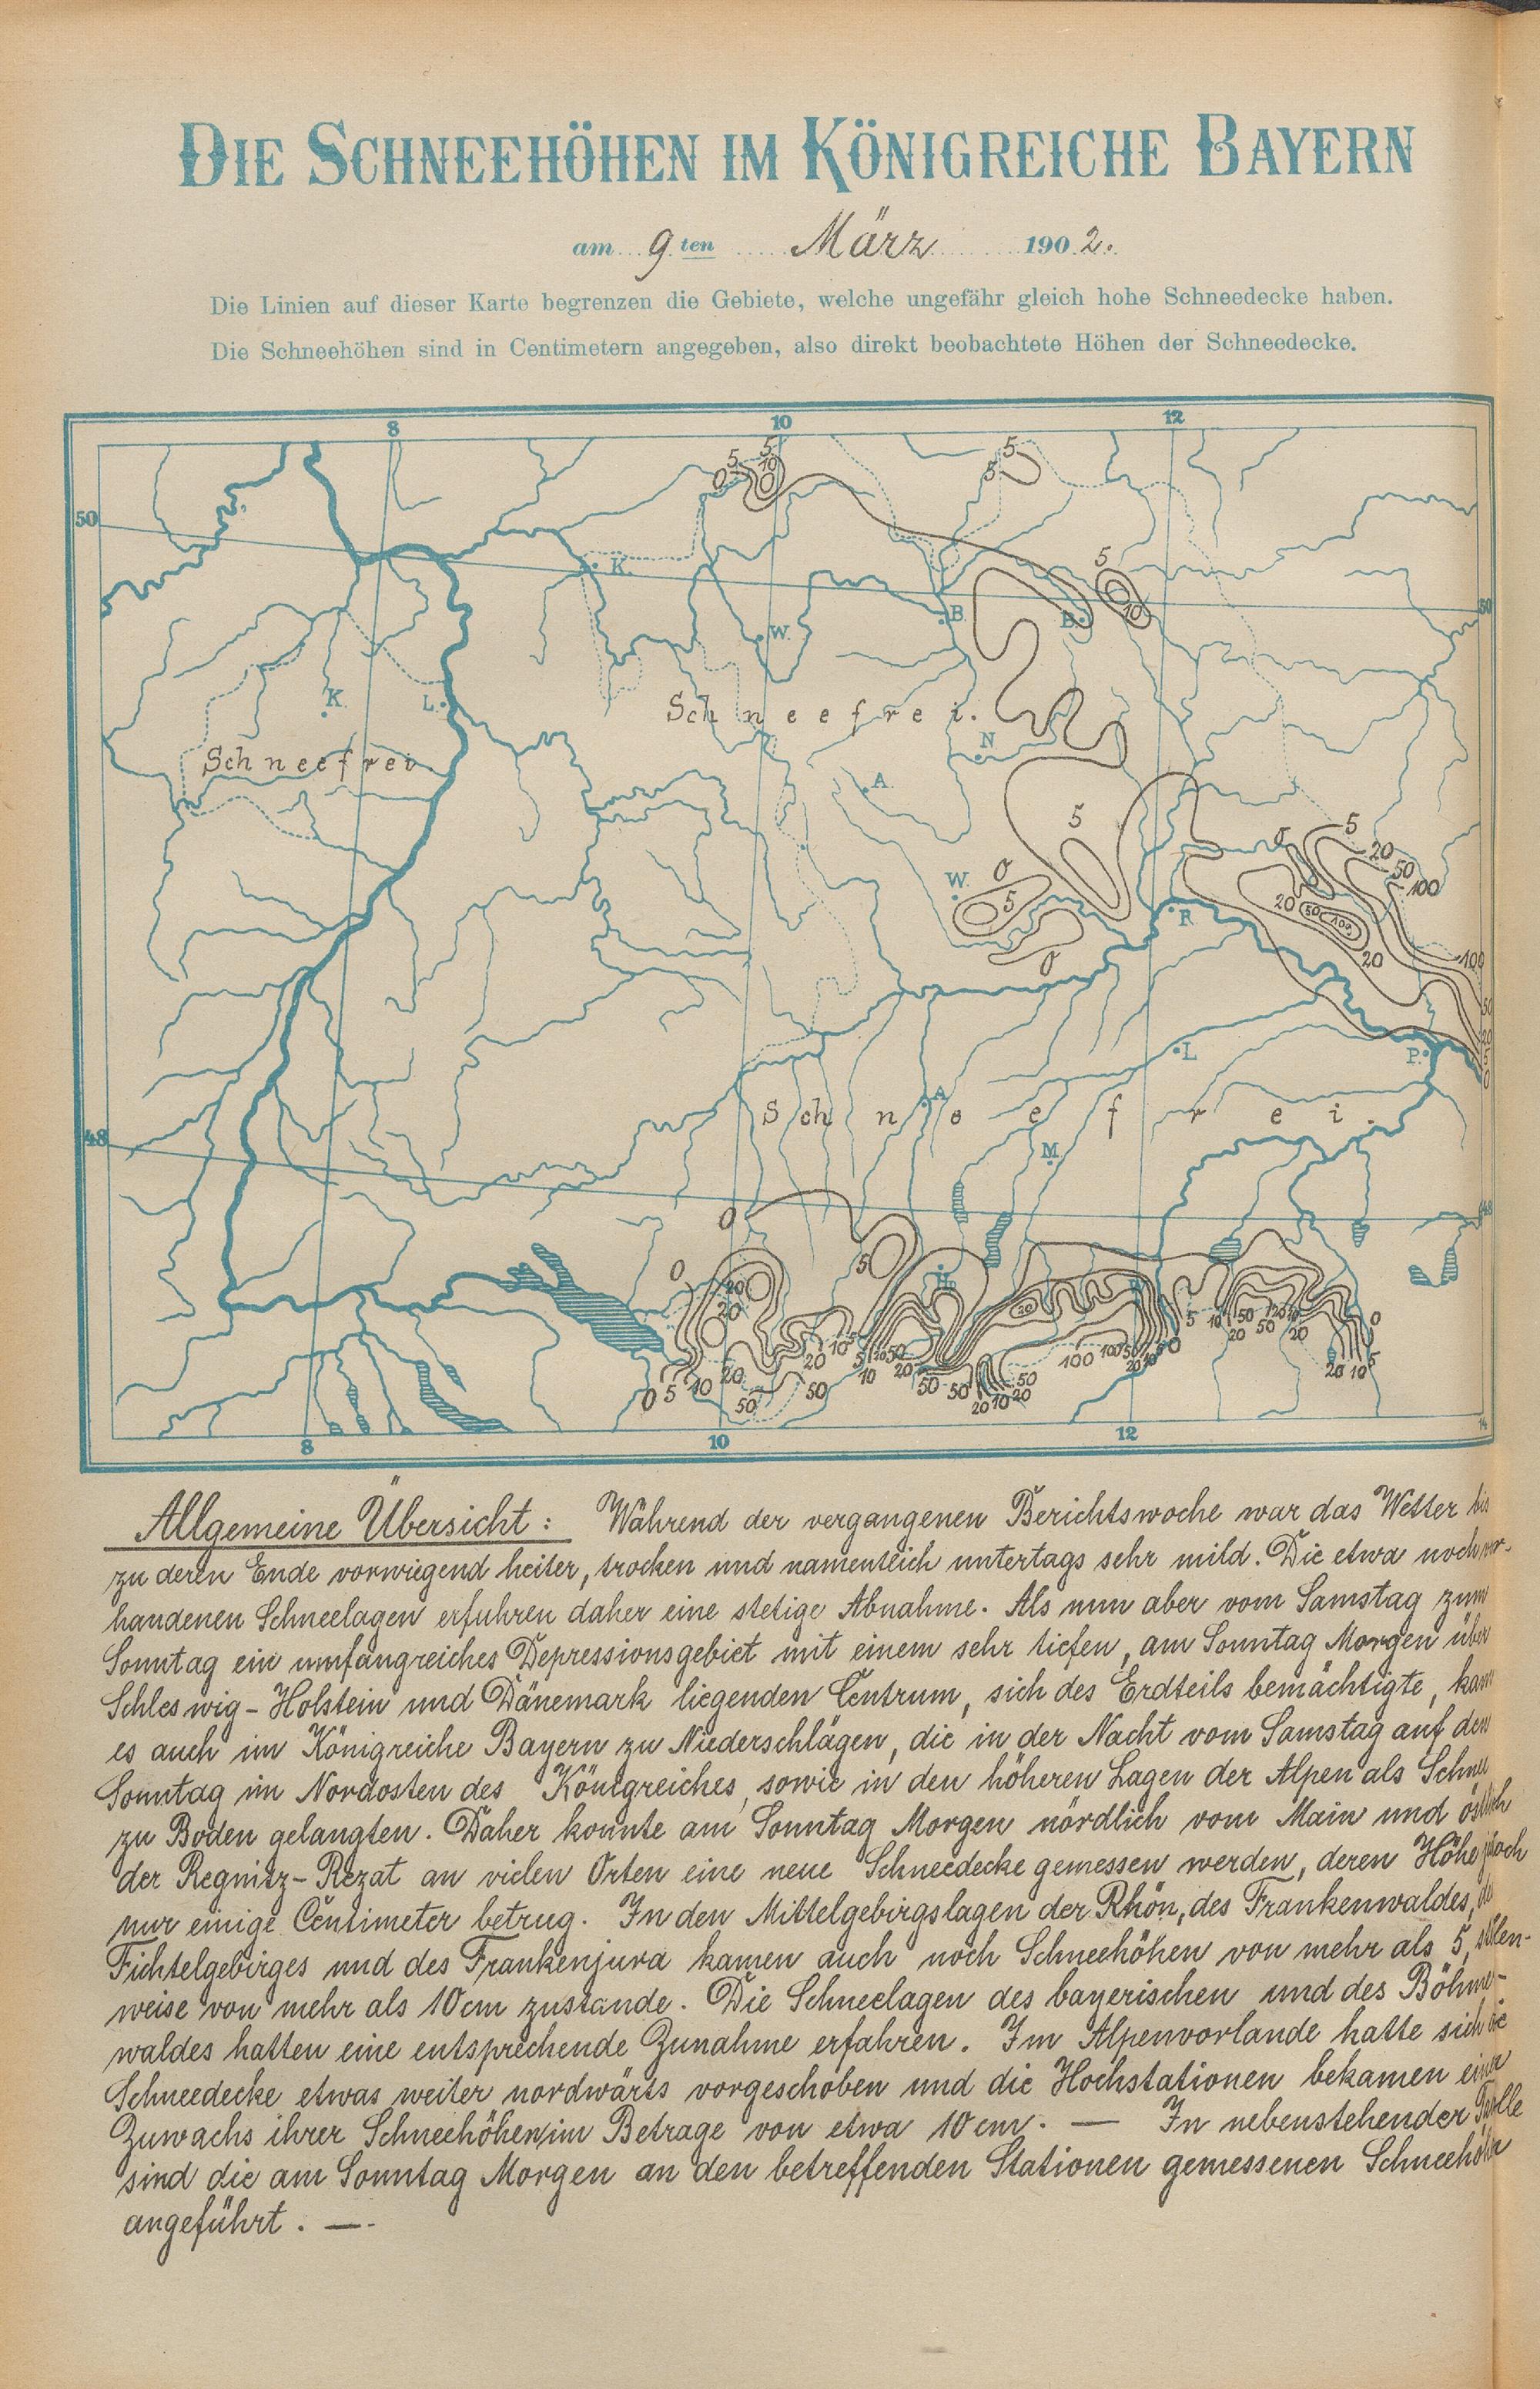 DIE SCHNEEHÖHEN IM KÖNIGREICHE BAYERN
am 9ten März 1902.
Die Linien auf dieser Karte begrenzen die Gebiete, welche ungefähr gleich hohe Schneedecke haben.
Die Schneehöhen sind in Centimetern angegeben, also direkt beobachtete Höhen der Schneedecke.
8 10 12
5 5
0 5 10 5
50
5
K.
50
B. B. 10
W.
K. L.
Schneefrei.
N
Schneefrei.
A.
5
0 5 20 50 100
W. 0 5
20 50 100
R
0 20 100
50
20
L P. 5
0
A
Schneefrei.
48 M
48
0
5
0
20
20
20
5 10 20 50 50 120 20 0
0 5 10 20 50 50 20 10 5
100 100
8 10 12 14
Allgemeine Übersicht: Während der vergangenen Berichtswoche war das Wetter bis
zu deren Ende vorwiegend heiter, trocken und namentlich untertags sehr mild. Die etwa noch vor-
handenen Schneelagen erfuhren daher eine stetige Abnahme. Als nun aber vom Samstag zum
Sonntag ein umfangreiches Depressionsgebiet mit einem sehr tiefen, am Sonntag Morgen über
Schleswig-Holstein und Dänemark liegenden Centrum, sich des Erdteils bemächtigte, kam
es auch im Königreiche Bayern zu Niederschlägen, die in der Nacht vom Samstag auf den
Sonntag im Nordosten des Königreiches, sowie in den höheren Lagen der Alpen als Schnee
zu Boden gelangten. Daher konnte am Sonntag Morgen nördlich vom Main und östlich
der Regnitz-Rezat an vielen Orten eine neue Schneedecke gemessen werden, deren Höhe jedoch
nur einige Centimeter betrug. In den Mittelgebirgslagen der Rhön, des Frankenwaldes, des
Fichtelgebirges und des Frankenjura kamen auch noch Schneehöhen von mehr als 5, stellen-
weise von mehr als 10 cm zustande. Die Schneelagen des bayerischen und des Böhmer-
waldes hatten eine entsprechende Zunahme erfahren. Im Alpenvorlande hatte sich die
Schneedecke etwas weiter nordwärts vorgeschoben und die Hochstationen bekamen einen
Zuwachs ihrer Schneehöhen im Betrage von etwa 10 cm. — In nebenstehender Tabelle
sind die am Sonntag Morgen an den betreffenden Stationen gemessenen Schneehöhen
angeführt. —.